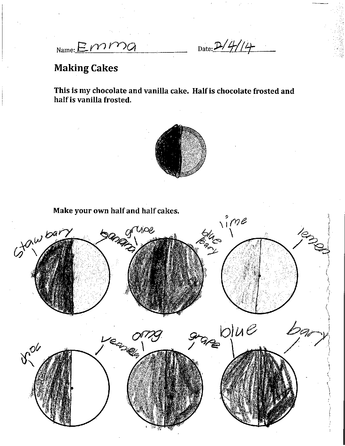 Name: Emma Date: 2/4/14
Making Cakes
This is my chocolate and vanilla cake. Half is chocolate frosted and
half is vanilla frosted.
Make your own half and half cakes.
stawbary banana grape blue bary lime lemen
choc omg grape blue bary